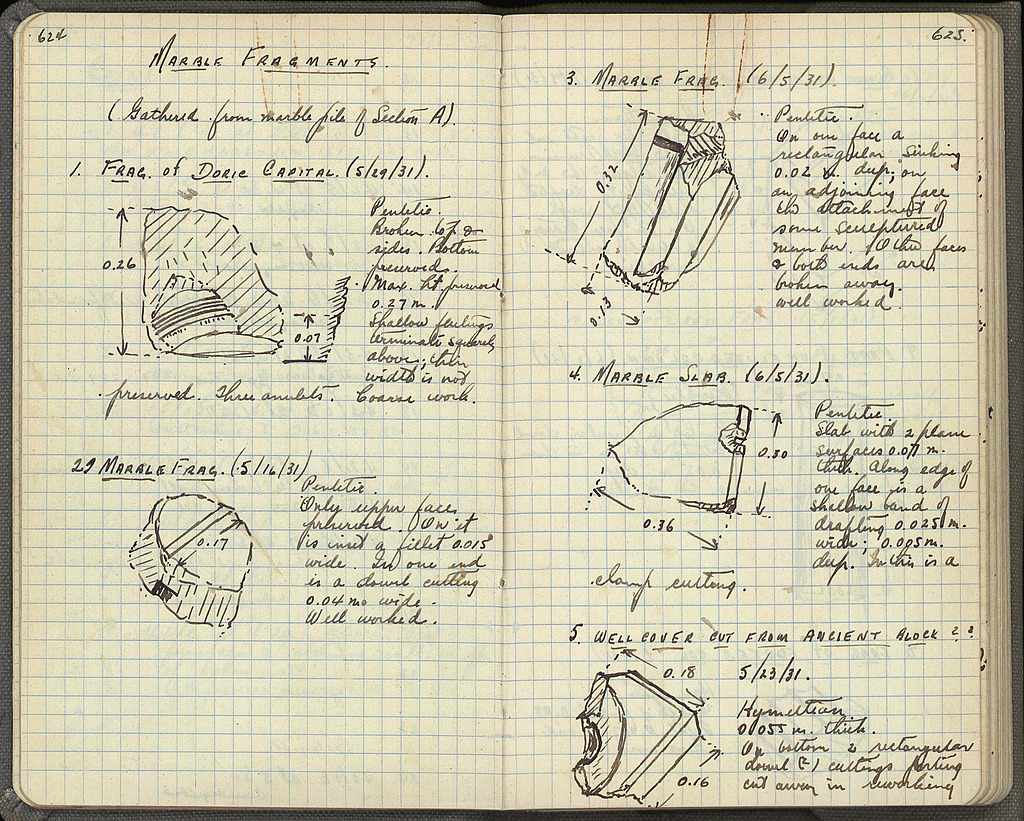 624
MARBLE FRAGMENTS.
(Gathered from marble pile of Section A).
1. FRAG. of DORIC CAPITAL. (5/29/31).
Pentelic.
Broken top &
sides. Bottom
preserved.
Max. ht. preserved
0.27 m.
Shallow flutings
terminate squarely
above; their
width is not
preserved. Three anulets. Coarse work.
0.26
0.07
29 MARBLE FRAG. (5/16/31)
Pentelic.
Only upper face
preserved. On it
is inset a fillet 0.015
wide. In one end
is a dowel cutting
0.04 m. wide.
Well worked.
0.17
625.
3. MARBLE FRAG. (6/5/31).
Pentelic.
On one face a
rectangular sinking
0.02 m. deep; on
an adjoining face
the attachment of
some sculptured
member. Other faces
& both ends are
broken away.
well worked
0.32
0.13
4. MARBLE SLAB. (6/5/31).
Pentelic.
Slab with 2 plane
surfaces 0.077 m.
thick. Along edge of
one face is a
shallow band of
drafting 0.025 m.
wide; 0.005 m.
deep. In this is a
clamp cutting.
0.30
0.36
5. WELL COVER CUT FROM ANCIENT BLOCK ??
5/23/31.
Hymettian
0.055 m. thick.
On bottom 2 rectangular
dowel (?) cuttings partly
cut away in reworking
0.18
0.16